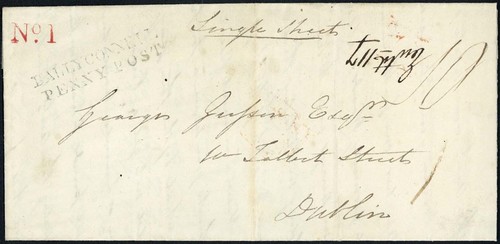 Single Sheet
No. 1
BALLYCONNELL
PENNY POST
George Jepson Esqr
10 Talbot Street
Dublin